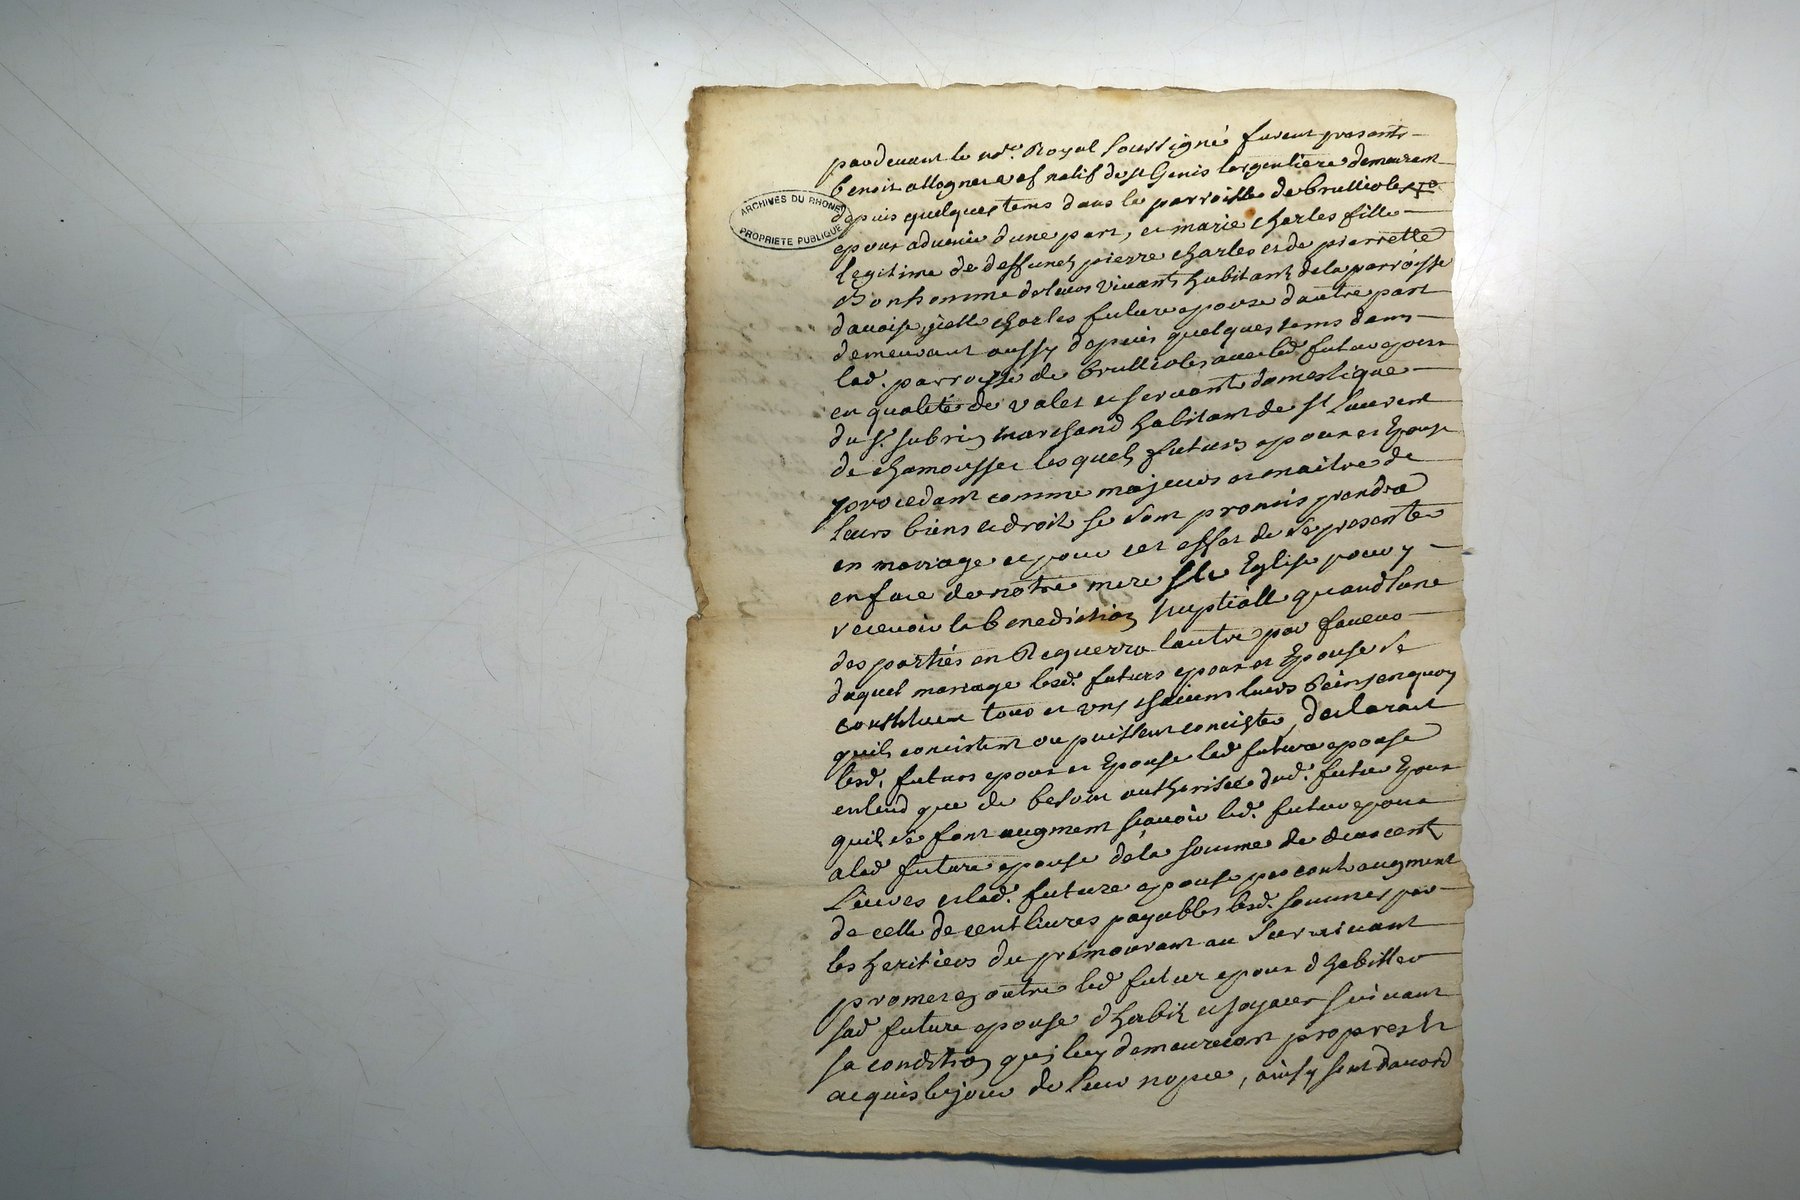 pardevant le no.re Royal soussigné furent presents
benoit allognerat natif de st Genis largentiere demeurant
ARCHIVES DU RHONE
PROPRIETE PUBLIQUE
depuis quelques tems dans la parroisse de brullioles
epoux advenir dune part, et marie charles fille
legitime de deffunct pierre charles et de pierrette
Bonhomme de leurs vivants habitant de la parroisse
davoise, jcelle charles future epouse dautre part
demeurant aussy depuis quelques tems dans
lad. parroisse de brullioles avec led. futur epoux
en qualité de valet et servante domestique
du sr. subrin marchand habitant de st Laurent
de chamousset lesquels futurs epoux et Epouse
procedant comme majeurs et maitre de
leurs biens et droits se sont promis prendre
en mariage et pour cet effet de se presenter
en face de notre mere ste Eglise pour y
recevoir la benediction Nuptialle quand lune
des parties en Requerra lautre par faveur
duquel mariage lesd. futurs epoux et Epouse se
constituent tous et uns chacuns leurs biens en quoy
quils concistent ou puissent concister, declarant
lesd. futurs epoux et Epouse lad future epouse
entend que de besoin authorisée dud. futur Epoux
quils se font augment scavoir led. futur epoux
a lad future epouse de la somme de deux cents
Livres et lad. future epouse par contraugment
de celle de cent livres payables lesd. sommes par
les heritiers du premourant au survivant
promet en outre led futur epoux d habiller
sad future epouse d habits et joyaux suivant
sa condition qui luy demeureront propres et
acquis le jour de leur nopce, ainsy sont dacord